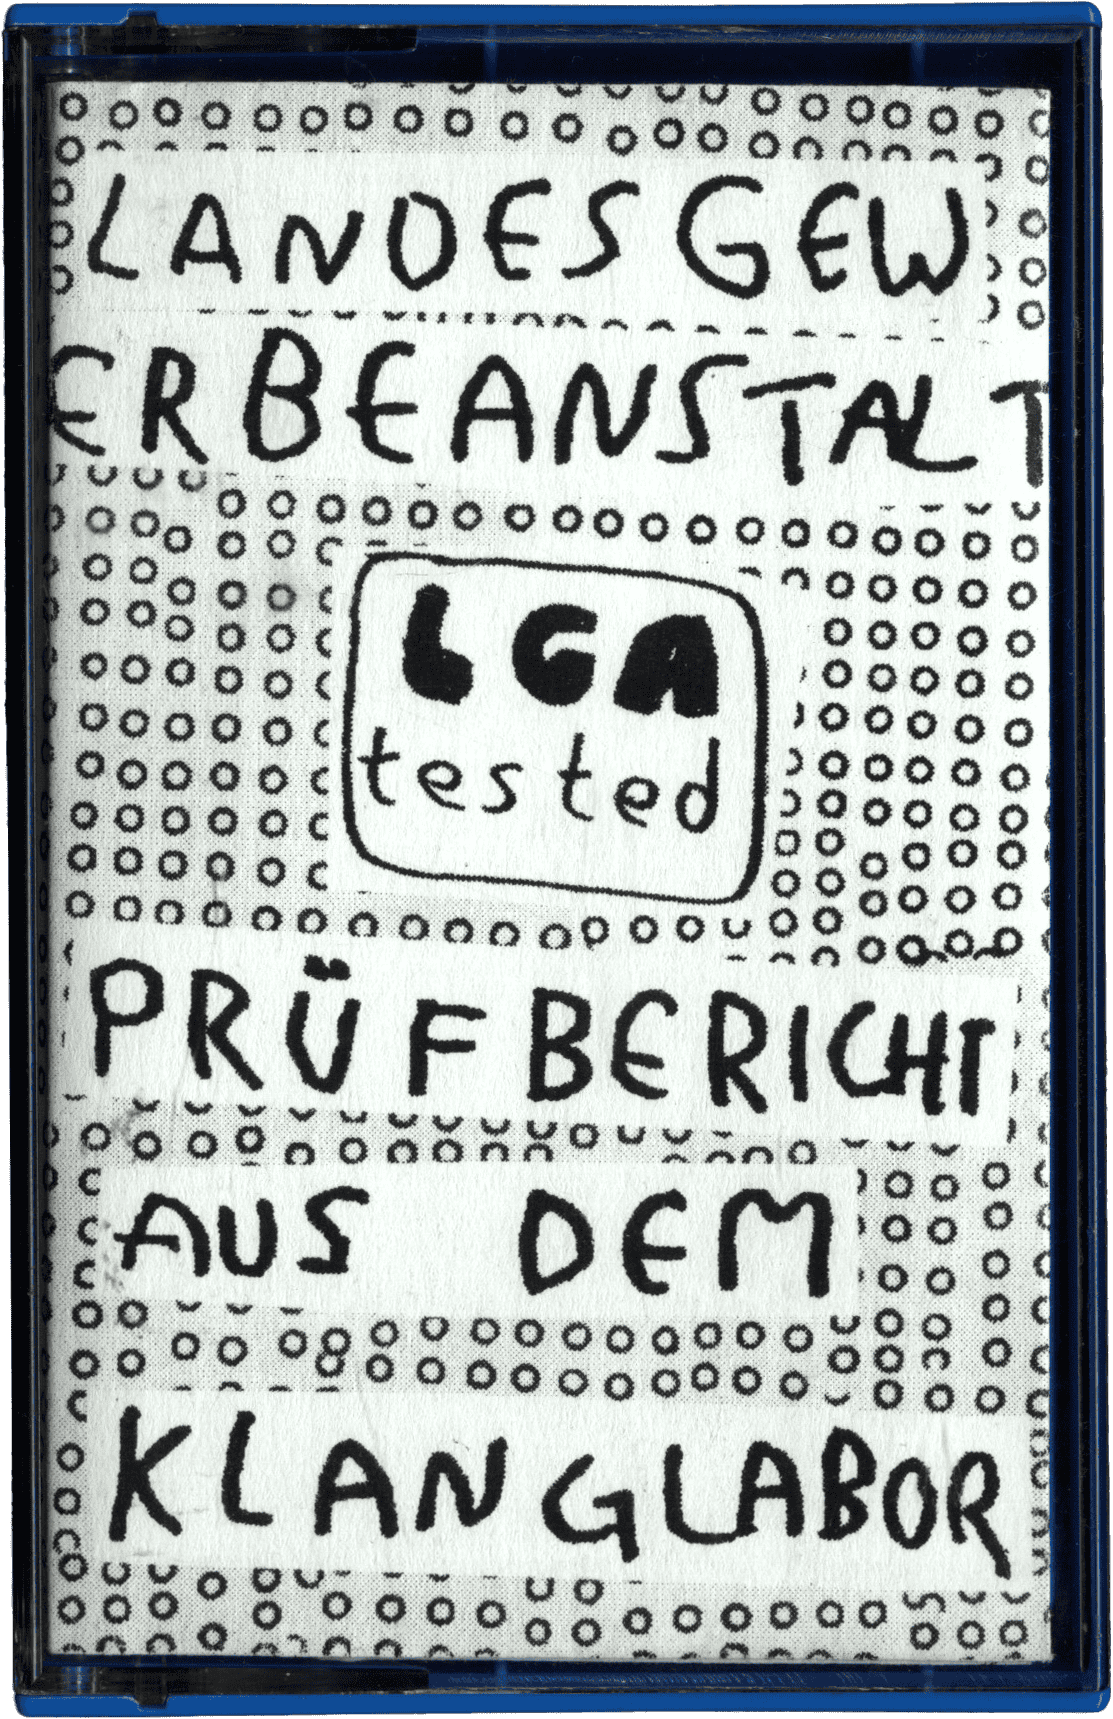 LANDESGEW
ERBEANSTALT
LGA
tested
PRÜFBERICHT
AUS DEM
KLANGLABOR